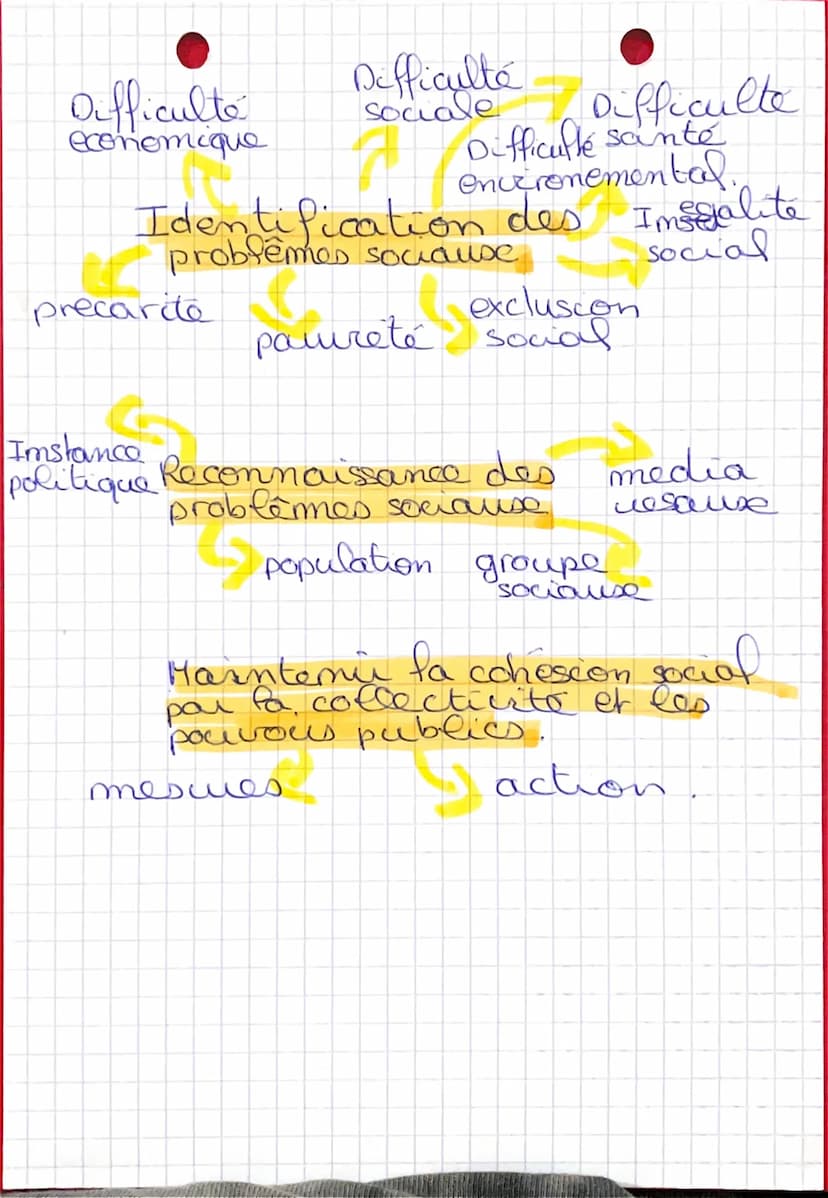 Difficulté
economique
Difficulté
sociale
Difficulté
santé
Difficulté
environemental.
Identification des
problêmes sociause
Inégalité
social
precarite
pauvreté
exclusion
social
Instance
politique
Reconnaissance des
problêmes sociause
media
population
groupe
sociause
Maintenir la cohesion social
par la collectivite et les
pouvoirs publics.
mesures
action.